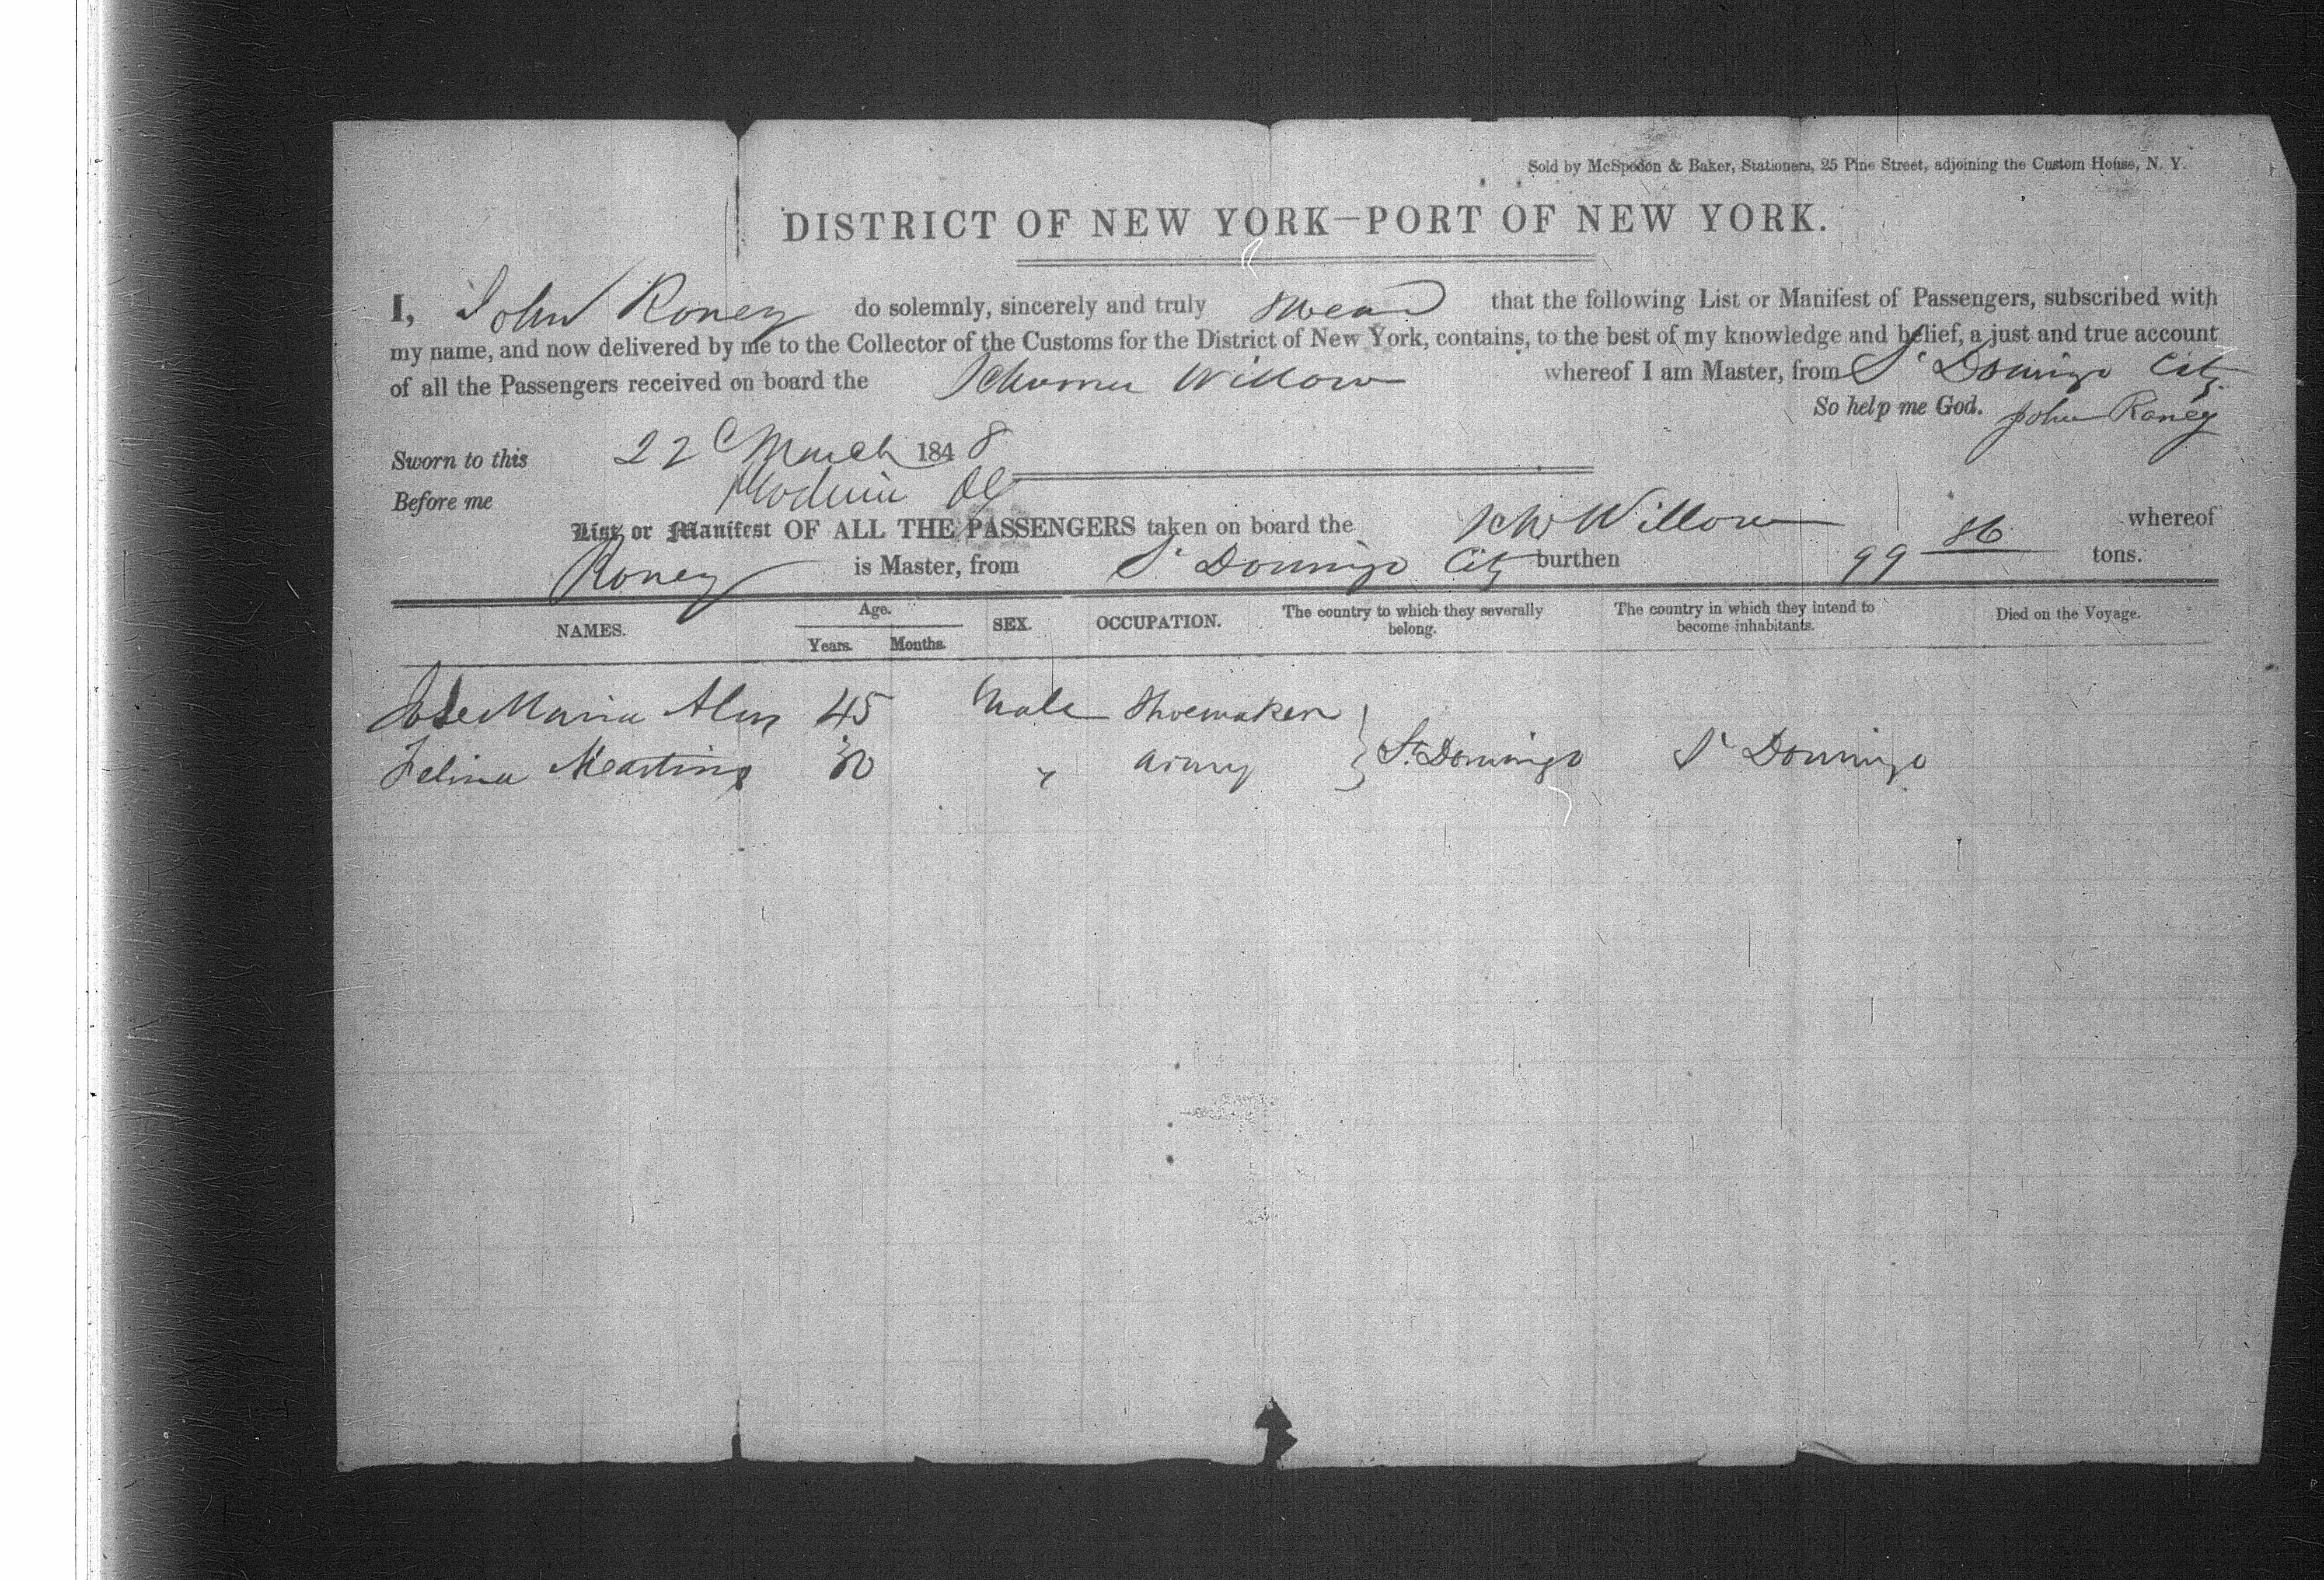 Sold by McSpedon & Baker, Stationers, 25 Pine Street, adjoining the Custom House, N. Y.
DISTRICT OF NEW YORK—PORT OF NEW YORK.
I, John Roney do solemnly, sincerely and truly swear that the following List or Manifest of Passengers, subscribed with
my name, and now delivered by me to the Collector of the Customs for the District of New York, contains, to the best of my knowledge and belief, a just and true account
of all the Passengers received on board the Schooner Willow whereof I am Master, from St Domingo City
So help me God. John Roney
Sworn to this 22 March 1848
Before me
List or Manifest OF ALL THE PASSENGERS taken on board the Schr Willow whereof
Roney is Master, from St Domingo City burthen 99 86 tons.
NAMES. Age. Years. Months. SEX. OCCUPATION. The country to which they severally belong. The country in which they intend to become inhabitants. Died on the Voyage.
Jose Maria 45 Male Shoemaker
Felina Martins 30 " Army } St. Domingo St Domingo